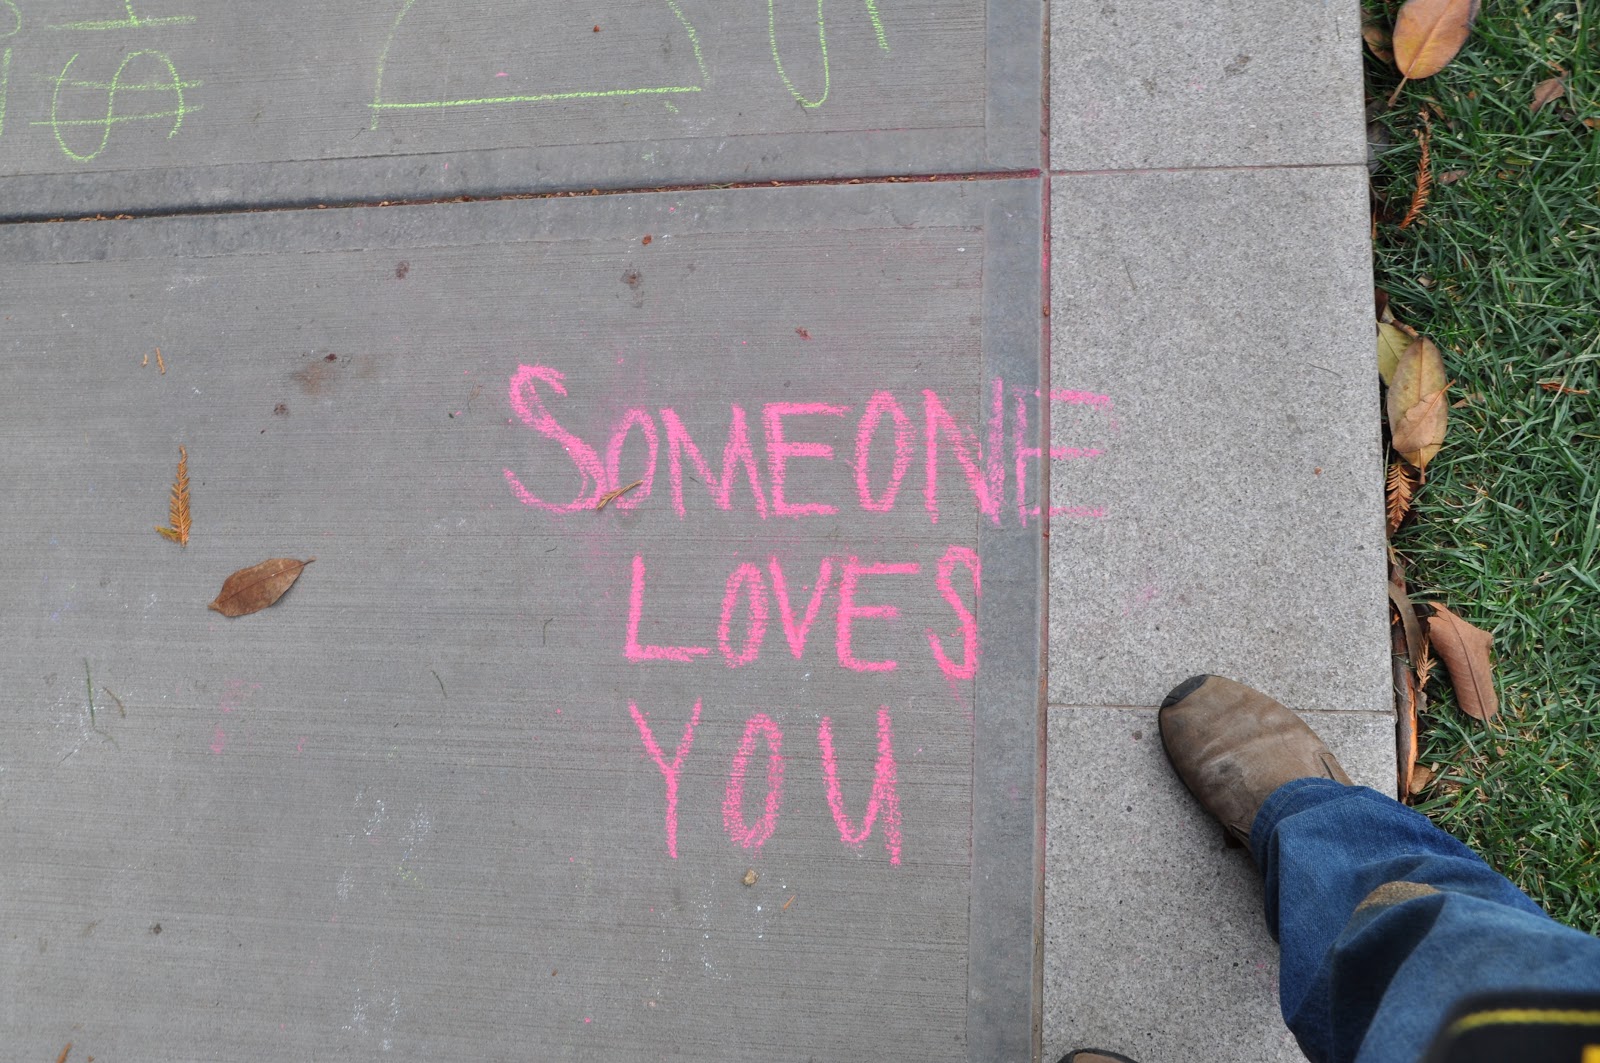 SOMEONE
LOVES
YOU